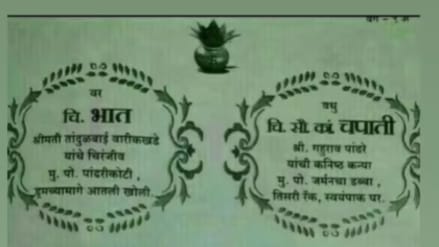 वर
चि. भात
श्रीमती तांदुळबाई वारीकखडे
यांचे चिरंजीव
मु. पो. पांदरीकोटी ,
डुमब्यामागे आतली खोली.
वधु
चि. सौ. कां. चपाती
श्री. गहुराव पांढरे
यांची कनिष्ठ कन्या
मु. पो. जर्मनचा डब्बा ,
तिसरी रॅक, स्वयंपाक घर.